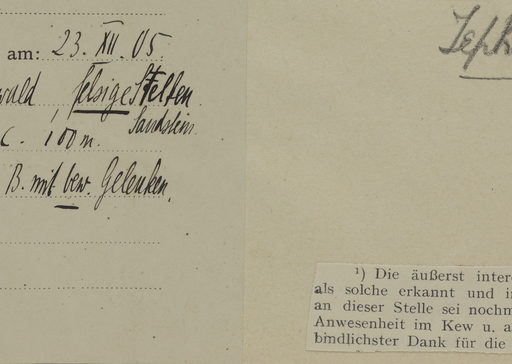 am: 23. XII. 05.
wald, felsige Stellen
Sandstein.
c. 100 m.
B. mit bew. Gelenken.
Teph
¹) Die äußerst inter
als solche erkannt und i
an dieser Stelle sei nochm
Anwesenheit im Kew u. a
bindlichster Dank für die